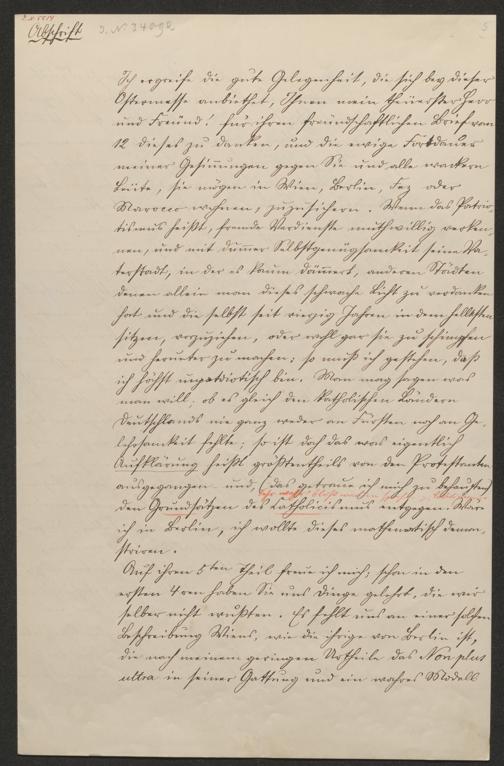 Abschrift
Ich ergreife die gute Gelegenheit, die sich bey dieser
Ostermesse anbiethet, Ihnen mein theuerster Herr
und Freund! für ihren freundschaftlichen Brief vom
12 dieses zu danken, und die ewige Fortdauer
meiner Gesinnungen gegen Sie und alle wackern
Leute, sie mögen in Wien, Berlin, Fez oder
Marocco wohnen, zuzusichern. Wenn das Patrio-
tismus heißt, fremde Verdienste muthwillig verken-
nen, und mit dummer Selbstgenügsamkeit seine Va-
terstadt, in der es kaum dämmert, anderen Städten
denen allein man dieses schwache Licht zu verdanken
hat und die selbst seit vierzig Jahren in dem hellsten
sitzen, vorzuziehen, oder wohl gar sie zu schimpfen
und herunter zu machen; so muß ich gestehen, daß
ich höchst unpatriotisch bin. Man mag sagen was
man will; ob es gleich den katholischen Ländern
Deutschlands nie ganz weder an Fürsten noch an Ge-
lehrsamkeit fehlte; so ist doch das was eigentlich
Aufklärung heißt größtentheils von den Protestanten
ausgegangen und, (das getraue ich mich zu behaupten)
den Grundsätzen des Katholicismus entgegen. Wäre
ich in Berlin, ich wollte dieses mathematisch demon-
striren.
Auf ihren 5ten Theil freue ich mich; schon in den
ersten 4ren haben Sie uns Dinge gelehrt, die wir
selber nicht wußten. Es fehlt uns an einer solchen
Beschreibung Wiens, wie die ihrige von Berlin ist,
die nach meinem geringen Urtheile das Non plus
ultra in seiner Gattung und ein wahres Modell